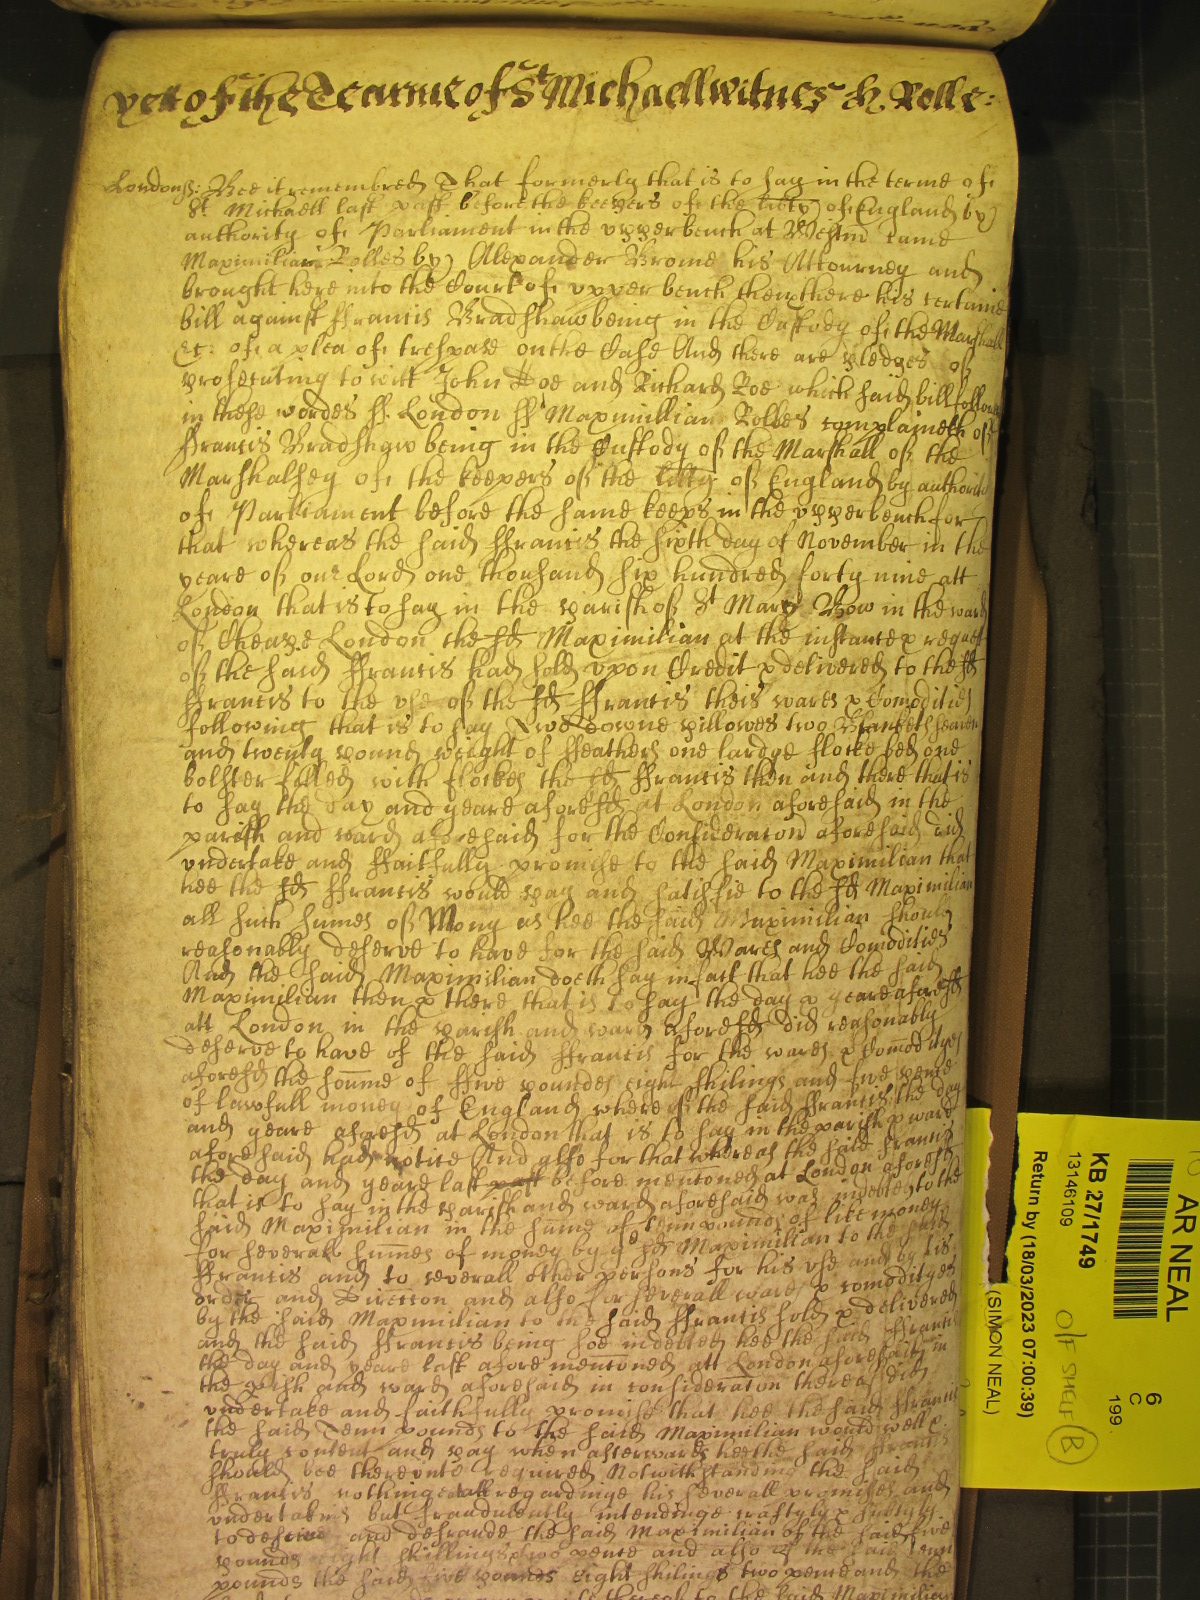 yett of the Tearme of St Michaell witnes H. Rolle:
London ss: Bee it remembred That formerly that is to say in the terme of
St. Michaell last past before the keepers of the litty of England by
authority of Parliament in the upper bench at Westm came
Maximilian Rolles by Alexander Brome his Attourney and
brought here into the Court of upper bench then there his certaine
bill against ffrancis Bradshaw being in the Custody of the Marshall
&c: of a plea of trespase on the Case And there are pledges of
prosecuting to witt John Doe and Richard Roe which said bill followes
in these wordes ss. London ss Maximillian Rolles complaineth of
ffrancis Bradshaw being in the Custody of the Marshall of the
Marshalsey of the keepers of the litty of England by authoritie
of Parliament before the same keeps in the upper bench for
that whereas the said ffrancis the sixth day of November in the
yeare of our Lord one thousand six hundred forty nine att
London that is to say in the parish of St Mary Bow in the ward
of Cheape London the sd Maximilian at the instance & request
of the said ffrancis had sold upon Credit & delivered to the sd
ffrancis to the use of the sd ffrancis theis wares & Comodities
following that is to say Two downe pillowes two Blanketts seaven
and twenty pound weight of ffeathers one lardge flocke bed one
bolster filled with flockes the sd ffrancis then and there that is
to say the day and yeare aforesd at London aforesaid in the
parish and ward aforesaid for the Consideraton aforesaid did
undertake and ffaithfully promise to the said Maximilian that
hee the sd ffrancis would pay and satisfie to the sd Maximilian
all such sumes of Mony as hee the said Maximilian should
reasonably deserve to have for the said Wares and Comodities
And the said Maximilian doeth say in fact that hee the said
Maximilian then & there that is to say the day & yeare aforesd
att London in the parish and ward aforesd did reasonably
deserve to have of the said ffrancis for the wares & Comodityes
aforesd the soume of ffive poundes eight shilings and pence
of lawfull money of England whereof the said ffrancis the day
and yeare aforesd at London that is to say in the parish & ward
aforesaid had notice And also for that whereas the said ffrancis
the day and yeare last past before mentoned at London aforesd
that is to say in the parish and ward aforesaid was indebted to the
said Maximilian in the sume of Tenn pounds of like money
for severall sumes of money by ye sd Maximilian to the said
ffrancis and to severall other persons for his use and by his
order and Direccon and also for severall wares & comoditges
by the said Maximilian to the said ffrancis sold & delivered
and the said ffrancis being soe indebted hee the said ffrancis
the day and yeare last aforementoned att London aforesaid in
the pish and ward aforesaid in consideraton thereof did
undertake and faithfully promise that hee the said ffrancis
the said Tenn pounds to the said Maximilian would well &
truly content and pay when afterwards hee the said ffrancis
should bee thereunto required Notwithstanding the said
ffrancis nothinge att all regardinge his severall promises and
undertakins but fraudulently intendinge craftyly & subtyly
to deceive and defraude the said Maximilian of the said five
pounds eight shillings & two pence and also of the said Tenn
pounds the said five pounds eight shilings two pence and the
thereof to the said Maximilian
AR NEAL
6
C
199
KB 27/1749
13146109
Return by (18/03/2023 07:00:39)
(SIMON NEAL)
O/F SHELF B